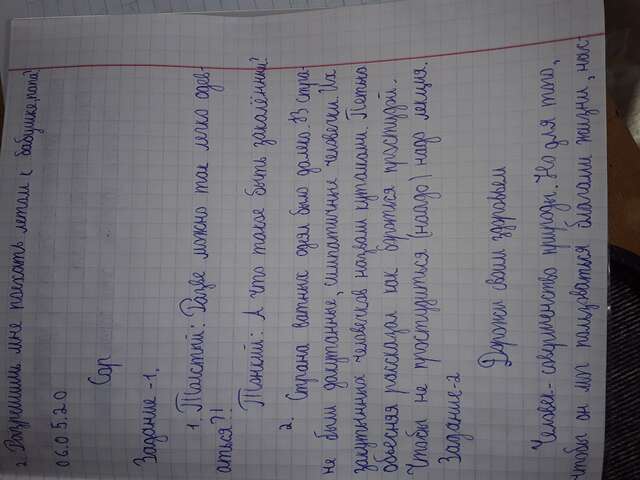 2. Разрешишь мне поехать летом к бабушке, папа?
06.05.20
Сор
Задание-1.
1. Толстый: Разве можно так легко одев-
аться?!
Тонкий: А что такое быть закалённым?
2. Страна ватных одеял было далеко. В стра-
не были закутанные, симпатичные человечки. Их
закутанных человечков назвали кутаками. Петько
объясняя рассказал как бороться простудой.
Чтобы не простудиться (наадо) надо лекция.
Задание-2
Дорожи своим здоровьем
Человек-совершенство природы. Но для того,
чтобы он мог пользоваться благами жизни, нас-